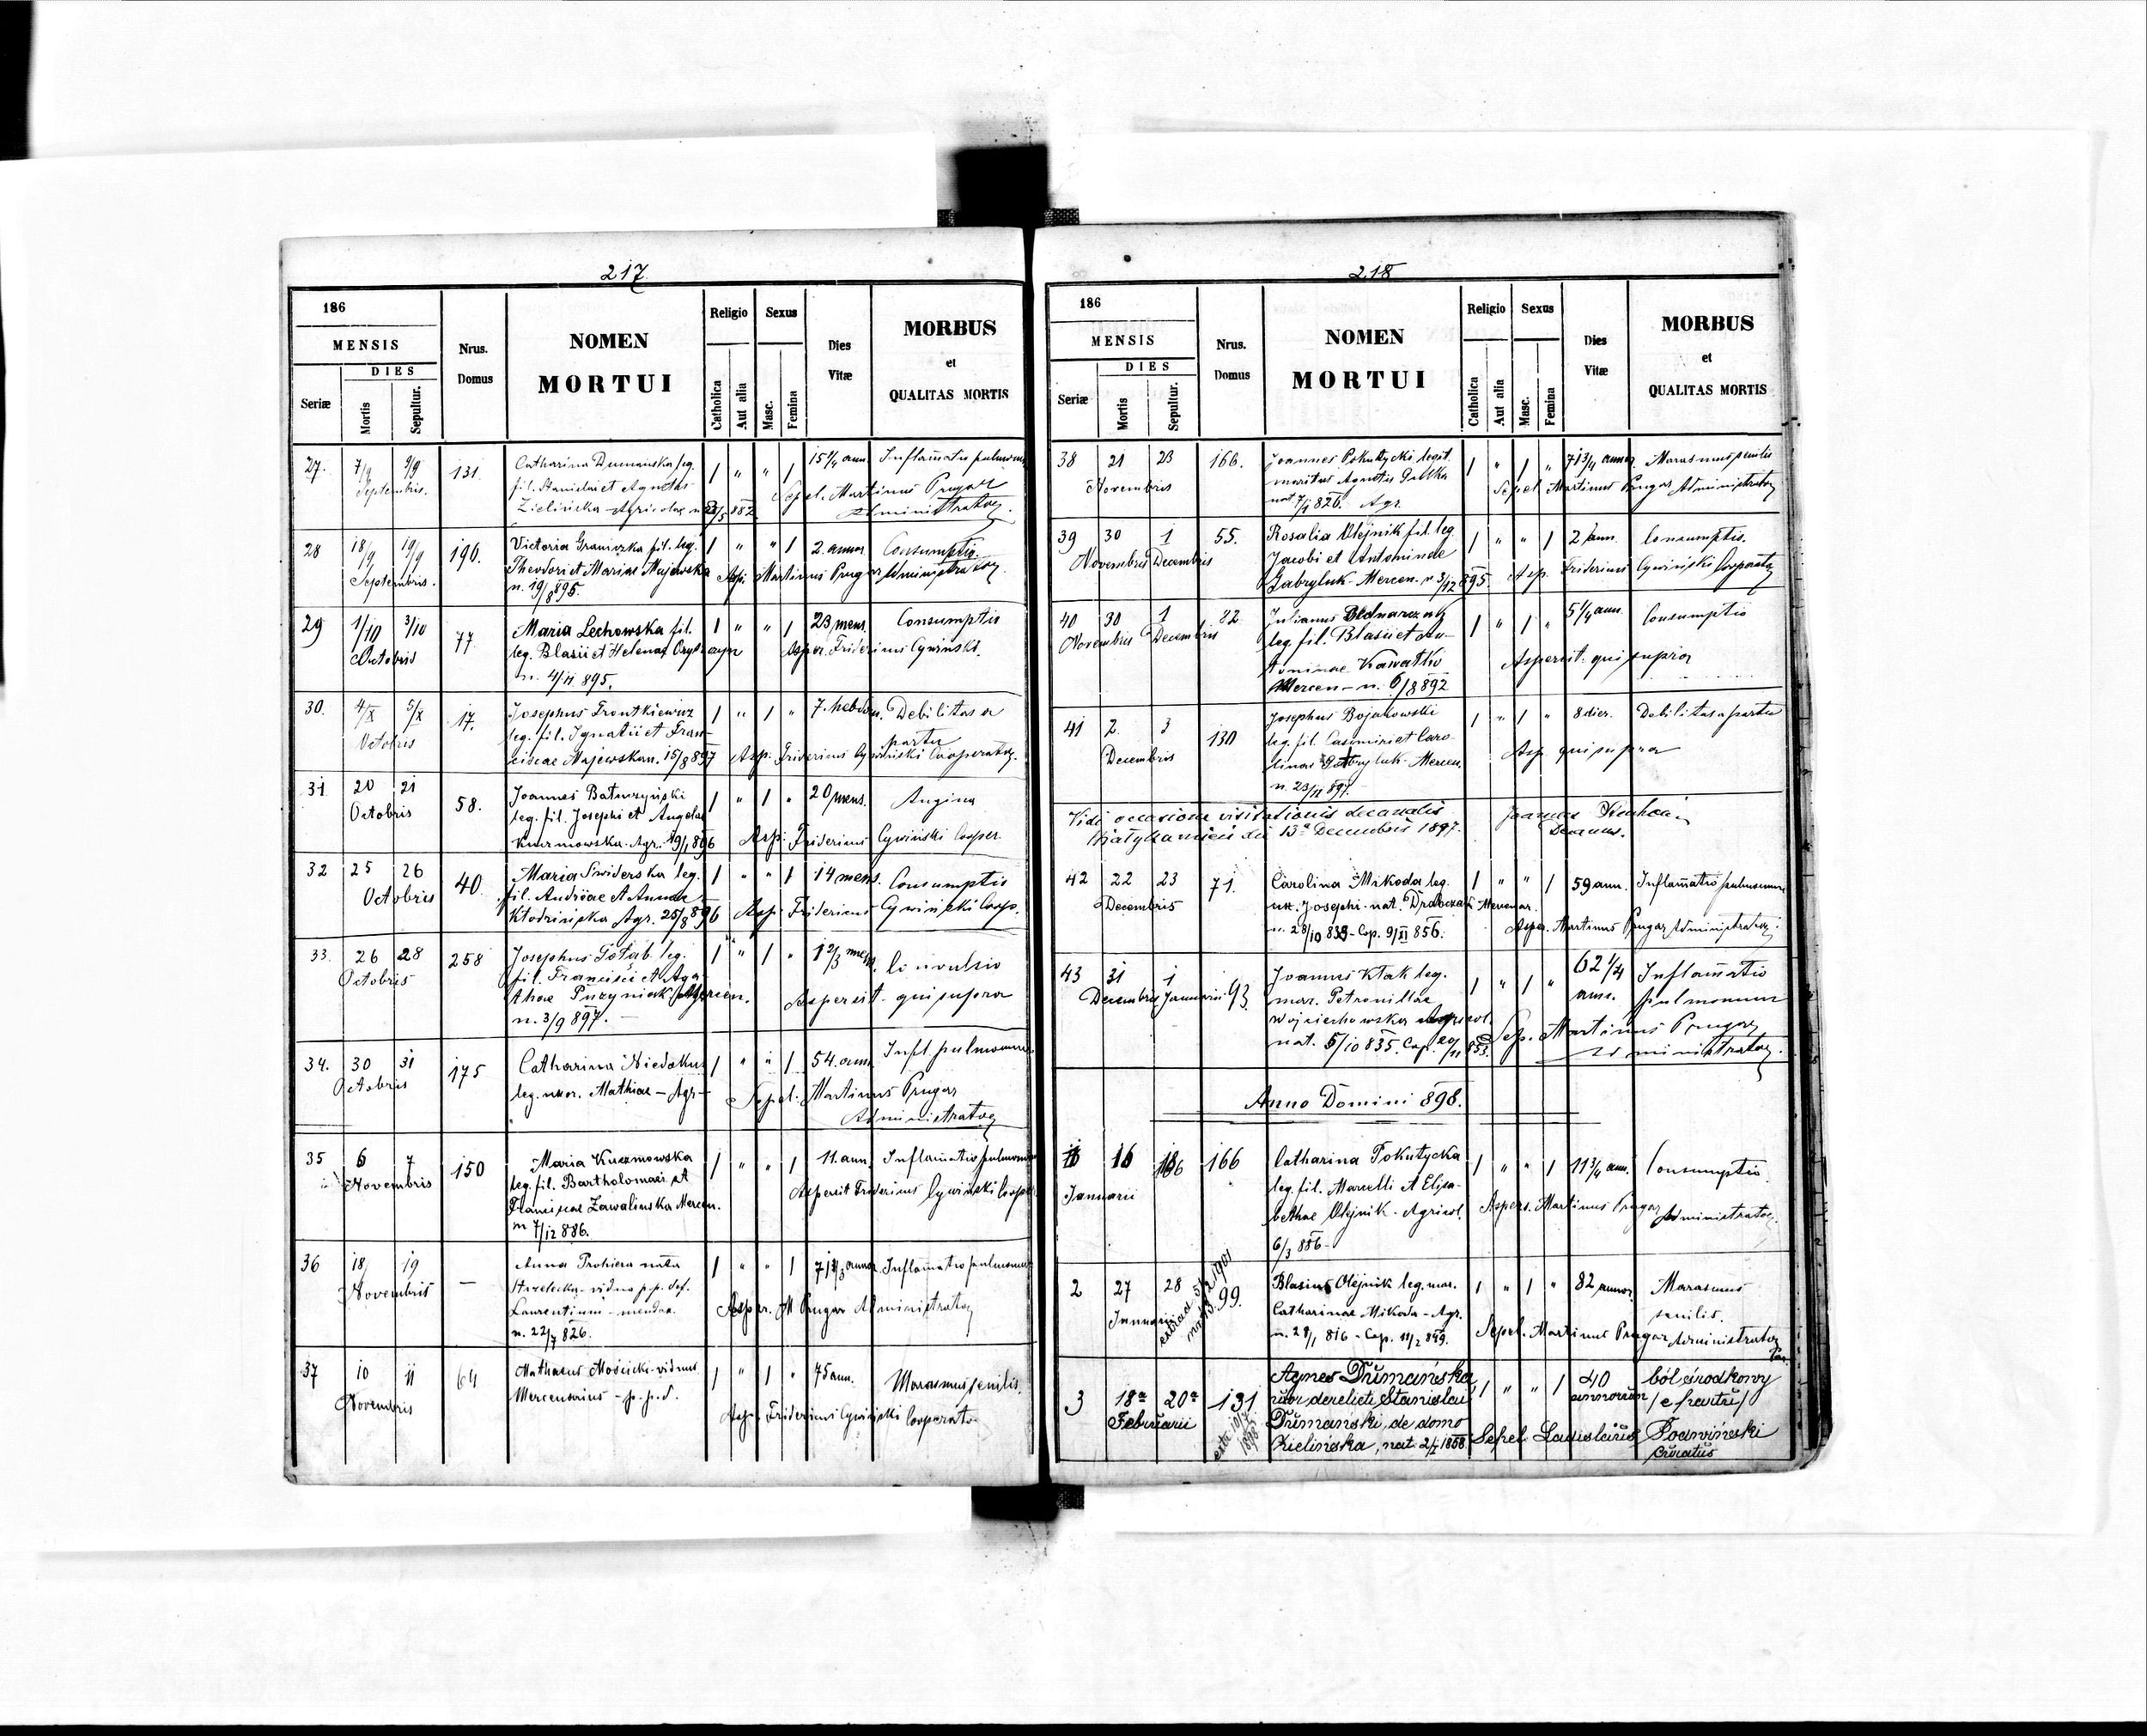 217
186
MENSIS
DIES
Seriæ
Mortis
Sepultur.
Nrus.
Domus
NOMEN
MORTUI
Religio
Catholica
Aut alia
Sexus
Masc.
Femina
Dies
Vitæ
MORBUS
et
QUALITAS MORTIS
27. 7/9 9/9 131. Catharina Dumańska leg. 1 " " 1 15 1/4 ann. Inflam̃atio pulmonum
Septembris. fil. Stanislai et Agnetis Sepel. Martinus Prugar
Zielińska - Agricolae n. 23/5 882 Administrator.
28 18/9 19/9 196. Victoria Graniczka fil. leg. 1 " " 1 2. annor. Consumptio
Septembris. Theodori et Mariae Majewska Asp. Martinus Prugar Administrator.
n. 19/8 895.
29 1/10 3/10 77. Maria Lechowska fil. 1 " " 1 23 mens. Consumptio
Octobris leg. Blasii et Helenae Asper. Fridericus Cywiński.
n. 4/11 895.
30. 4/X 5/X 17. Josephus Frontkiewicz 1 " 1 " 7. hebdom. Debilitas a
Octobris leg. fil. Ignatii et Fran- partu
ciscae Majewska n. 15/8 897 Asp. Fridericus Cywiński Cooperator.
31 20 21 58. Joannes Baturzyński 1 " 1 " 20 mens. Angina
Octobris leg. fil. Josephi et Angelae
Kuzmowska - Agr. 19/1 896 Asp. Fridericus Cywiński Cooper.
32 25 26 40. Maria Swiderska leg. 1 " " 1 14 mens. Consumptio
Octobris fil. Andreae et Annae
Kłodzińska Agr. 25/8 896 Asp. Fridericus Cywiński Coop.
33. 26 28 258 Josephus Gołąb leg. 1 " 1 " 1 2/3 mens. Convulsio
Octobris fil. Francisci et Aga-
thae Puzyniak Mercen. Aspersit qui supra
n. 3/9 897.
34. 30 31 175 Catharina 1 " " 1 54. ann. Infl. pulmonum
Octobris leg. uxor. Mathiae - Agr - Sepel. Martinus Prugar
Administrator
35 6 7 150 Maria Kuzmowska 1 " " 1 11. ann. Inflam̃atio pulmonum
Novembris leg. fil. Bartholomaei et Aspersit Fridericus Cywiński Cooper.
Franciscae Zawalinska Mercen.
n 7/12 886.
36 18 19 — Anna Prohiera nata 1 " " 1 71 1/3 annor. Inflam̃atio pulmonum
Novembris Strzelecka - vidua p. p. def.
Laurentium - mendica. Asper. M Prugar Administrator
n. 22/7 826.
37 10 11 64 Mathaeus Mościcki - viduus 1 " 1 " 75 ann. Marasmus senilis
Novembris Mercenarius - p. p. d.
Asp. Fridericus Cywiński Cooperator
218
186
MENSIS
DIES
Seriæ
Mortis
Sepultur.
Nrus.
Domus
NOMEN
MORTUI
Religio
Catholica
Aut alia
Sexus
Masc.
Femina
Dies
Vitæ
MORBUS
et
QUALITAS MORTIS
38 21 23 166. Joannes Pokutycki legit. 1 " 1 " 71 3/4 annor. Marasmus senilis
Novembris maritus Agnetis Sepel. Martinus Prugar Administrator
nat. 7/1 826. Agr.
39 30 1 55. Rosalia Olejnik fil. leg. 1 " " 1 2 ann. Consumptio.
Novembris Decembris Jacobi et Antoninae
Gabryluk - Mercen. n 3/12 895. Asp. Fridericus Cywiński Cooperator
40 30 1 22. Julianus Bednarczuk 1 " 1 " 5 1/4 ann. Consumptio
Novembris Decembris leg. fil. Blasii et An-
toninae Kawałko Aspersit. qui supra
Mercen - n. 6/8 892
41 2. 3 130 Josephus Bojakowski 1 " 1 " 8 dier. Debilitas a partu
Decembris leg. fil. Casimiri et Caro-
linae Gabryluk - Mercen. Asp. qui supra
n. 23/11 897.
Vidi occasione visitationis decanalis
die 13ª Decembris 1897. Joannes
Decanus.
42 22 23 71. Carolina Mikoda leg. 1 " " 1 59 ann. Inflam̃atio pulmonum
Decembris ux. Josephi - nat. Drabczak Mercenar.
n. 28/10 838 - Cop. 9/II 856. Asper. Martinus Prugar Administrator.
43 31 1 93. Joannes Kłak leg. 1 " 1 " 62 1/4 Inflam̃atio
Decembris Januarii mar. Petronillae ann. pulmonum
Wojciechowska Agricol. Sep. Martinus Prugar
nat. 5/10 835. Cop. 20/11 853. Administrator.
Anno Domini 898.
16 16 166 Catharina Pokutycka 1 " " 1 11 3/4 ann. Consumptio
Januarii leg. fil. Marcelli et Elisa-
bethae Olejnik - Agricol. Aspers. Martinus Prugar Administrator.
6/3 886 -
2 27 28 99. Blasius Olejnik leg. mar. 1 " 1 " 82 annor. Marasmus
Januarii Catharinae Mikoda - Agr. senilis.
n. 28/1 816 - Cop. 11/2 899. Sepel. Martinus Prugar Administrator
3 18ª 20ª 131 Agnes Dumańska 1 " " 1 40 ból środkowy
Februarii uxor derelicti Stanislai annorum /e partu/
Dumański, de domo
Zielińska, nat. 2/I 1858 Sepel. Ladislaus Podwiński
Curatus